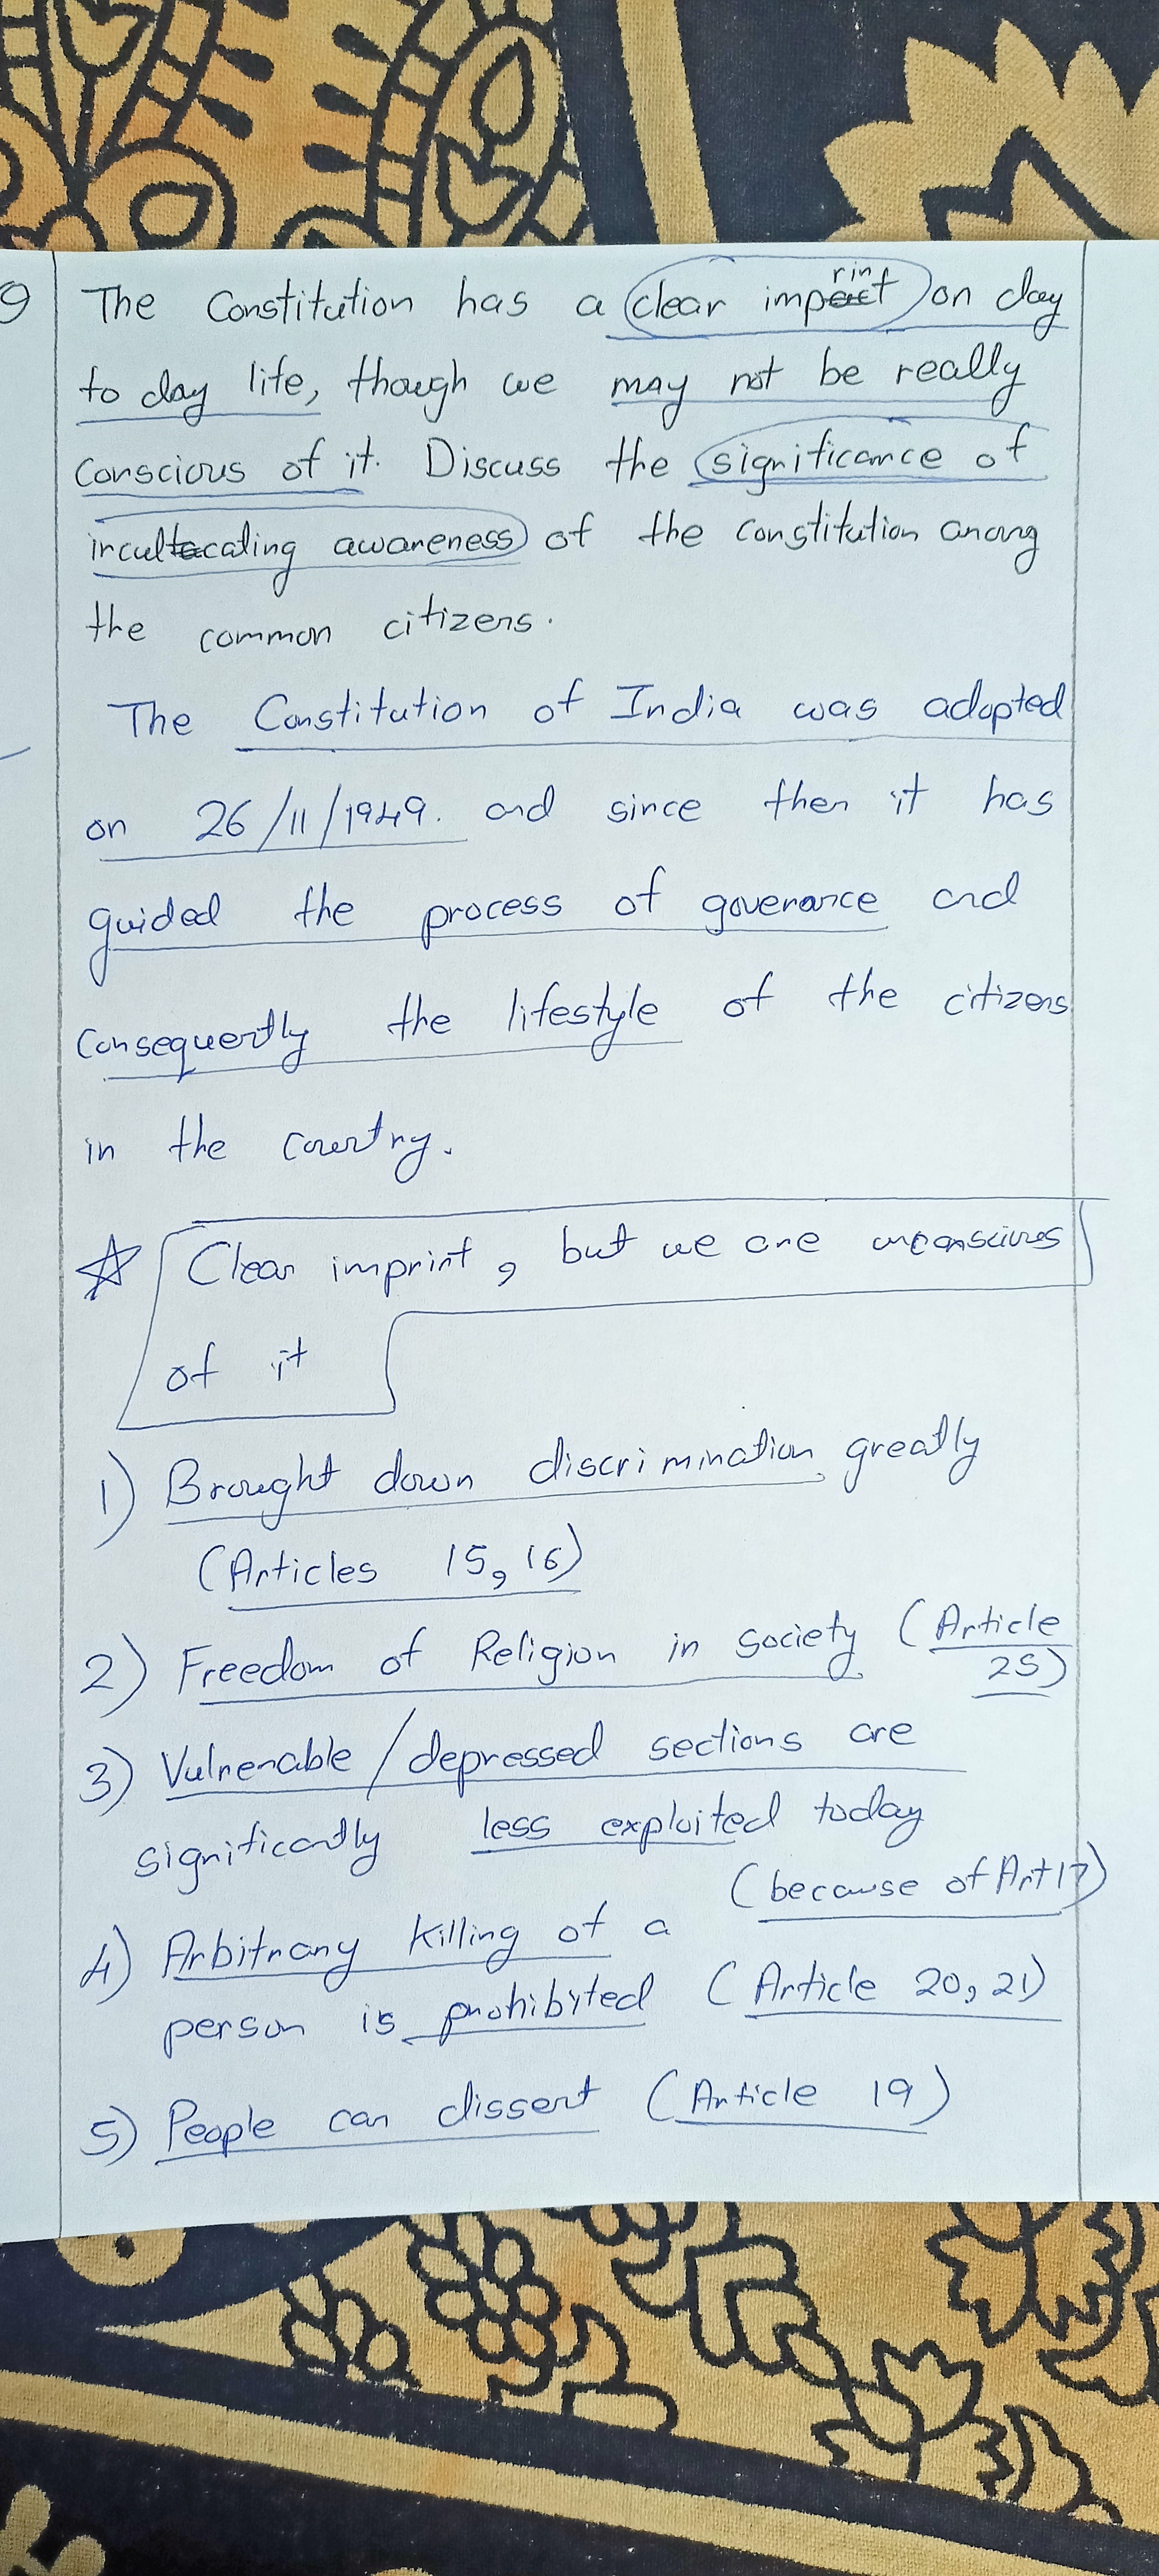 9 The Constitution has a clear imprint on day
to day life, though we may not be really
conscious of it. Discuss the significance of
inculcating awareness of the constitution among
the common citizens.
The Constitution of India was adopted
on 26/11/1949. and since then it has
guided the process of governance and
consequently the lifestyle of the citizens
in the country.
Clear imprint, but we are unconscious
of it
1) Brought down discrimination greatly
(Articles 15, 16)
2) Freedom of Religion in society (Article
25)
3) Vulnerable/depressed sections are
significantly less exploited today
(because of Art 17)
4) Arbitrary killing of a
person is prohibited (Article 20, 21)
5) People can dissent (Article 19)